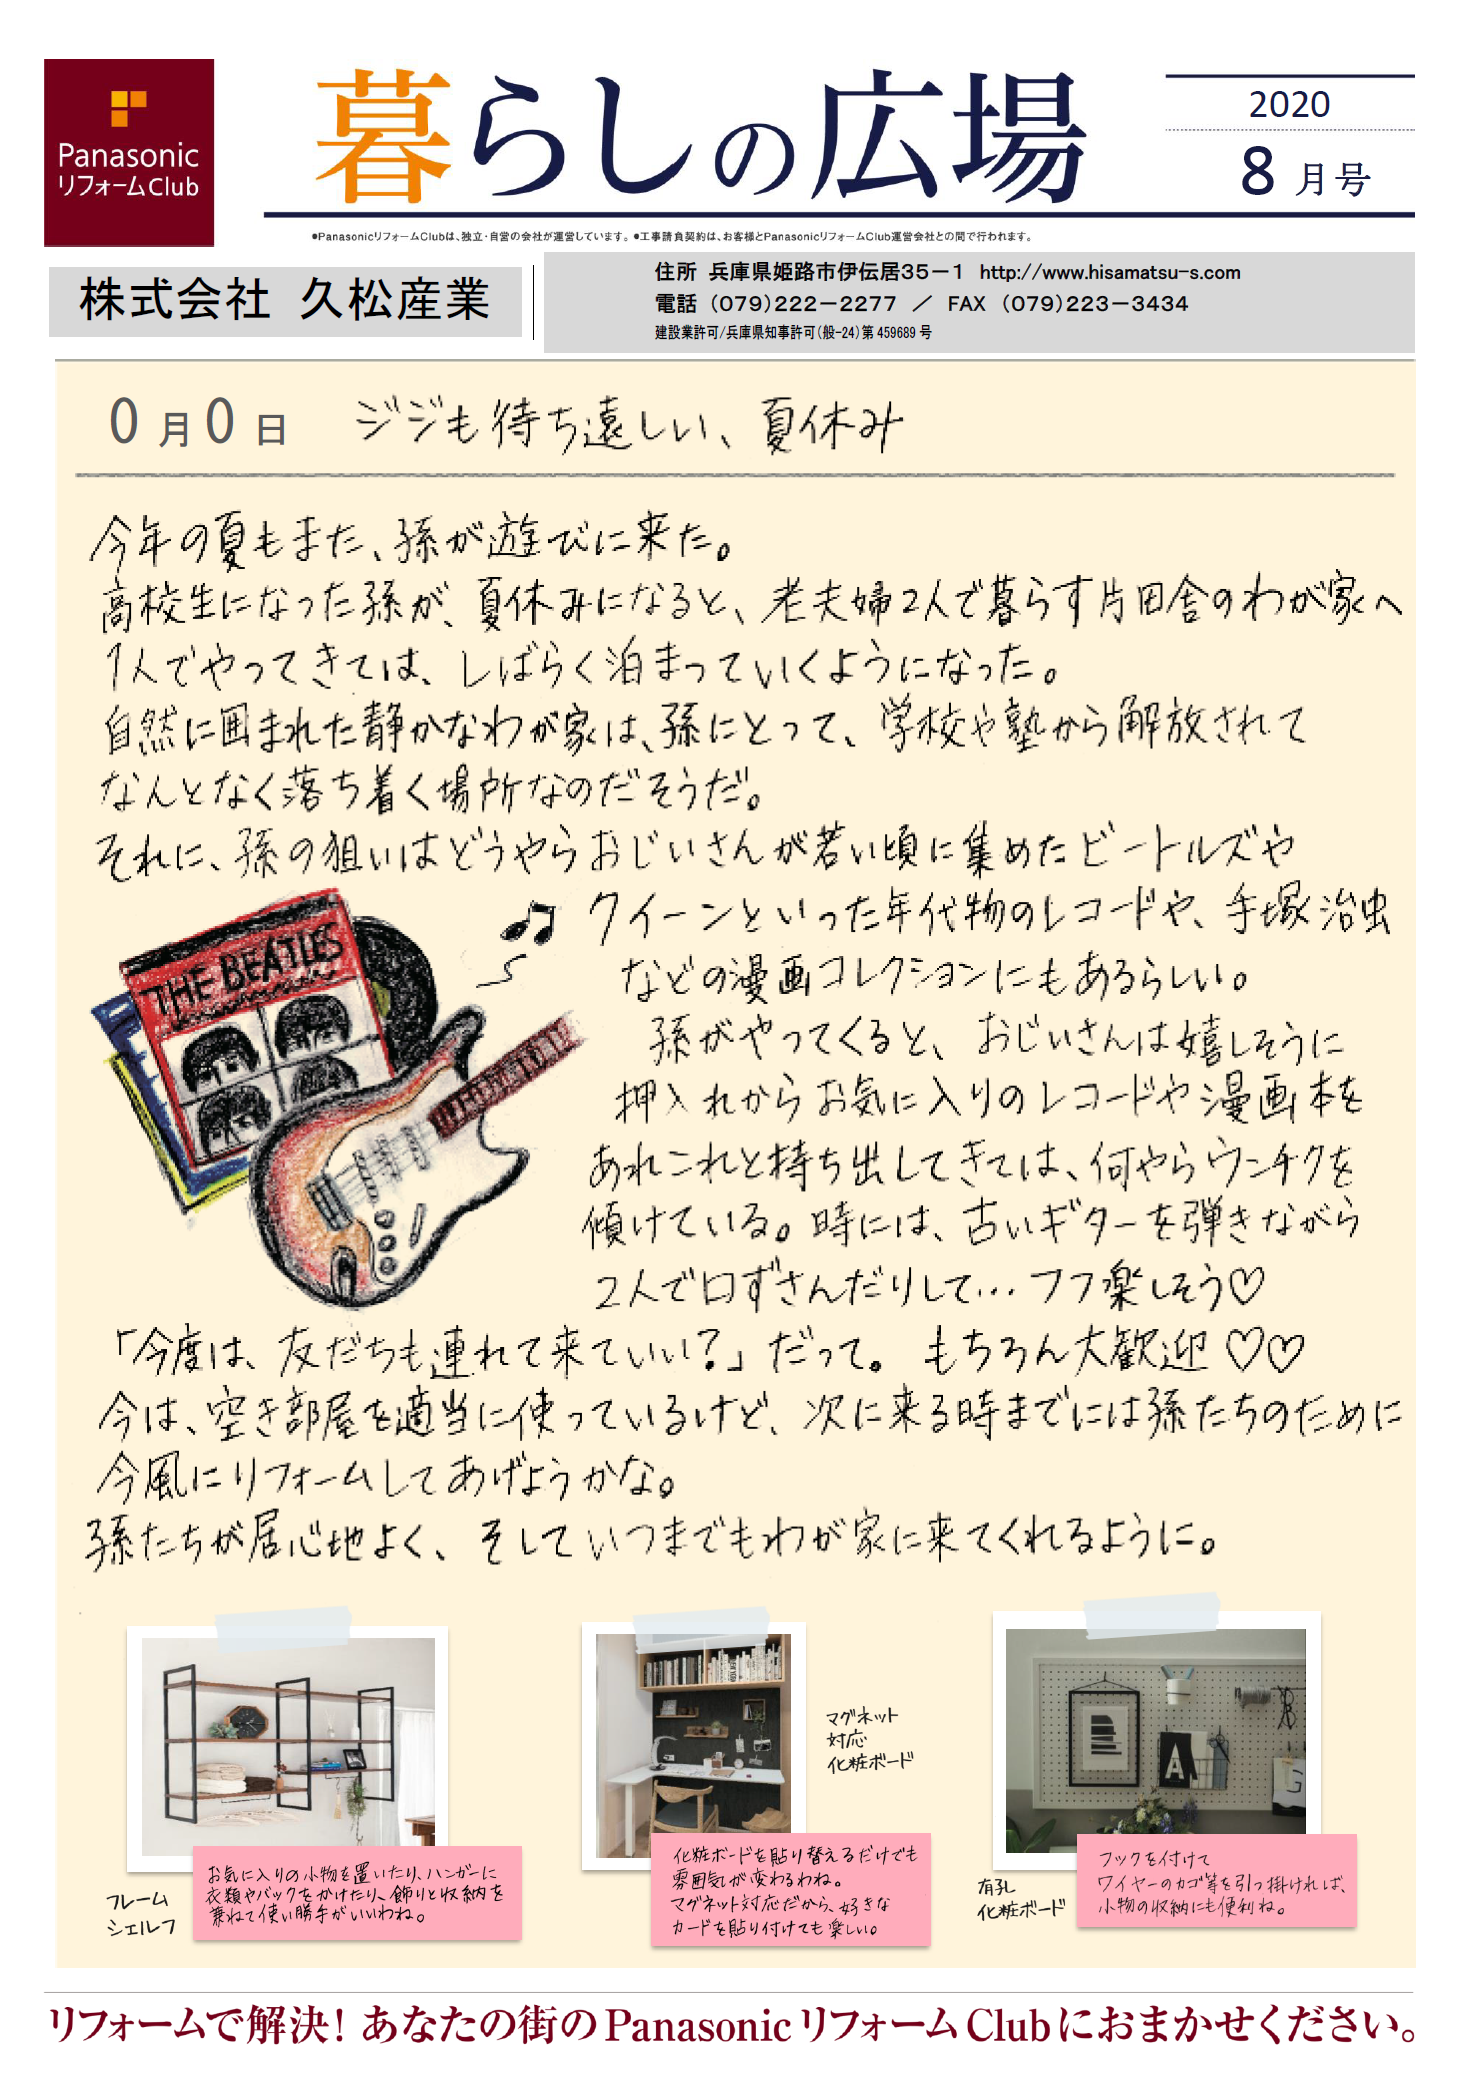 Panasonic
リフォームClub
暮らしの広場
2020
8月号
●PanasonicリフォームClubは、独立・自営の会社が運営しています。●工事請負契約は、お客様とPanasonicリフォームClub運営会社との間で行われます。
株式会社 久松産業
住所 兵庫県姫路市伊伝居35－1 http://www.hisamatsu-s.com
電話 (079)222－2277 ／ FAX (079)223－3434
建設業許可/兵庫県知事許可(般-24)第459689号
0月0日 ジジも待ち遠しい、夏休み
今年の夏もまた、孫が遊びに来た。
高校生になった孫が、夏休みになると、老夫婦2人で暮らす片田舎のわが家へ
1人でやってきては、しばらく泊まっていくようになった。
自然に囲まれた静かなわが家は、孫にとって、学校や塾から解放されて
なんとなく落ち着く場所なのだそうだ。
それに、孫の狙いはどうやらおじいさんが若い頃に集めたビートルズや
クイーンといった年代物のレコードや、手塚治虫
などの漫画コレクションにもあるらしい。
孫がやってくると、おじいさんは嬉しそうに
押入れからお気に入りのレコードや漫画本を
あれこれと持ち出してきては、何やらウンチクを
傾けている。時には、古いギターを弾きながら
2人で口ずさんだりして…フフ楽しそう♡
「今度は、友だちも連れて来ていい？」だって。もちろん大歓迎♡♡
今は、空き部屋を適当に使っているけど、次に来る時までには孫たちのために
今風にリフォームしてあげようかな。
孫たちが居心地よく、そしていつまでもわが家に来てくれるように。
THE BEATLES
フレーム
シェルフ
お気に入りの小物を置いたり、ハンガーに
衣類やバックをかけたり、飾りと収納を
兼ねて使い勝手がいいわね。
マグネット
対応
化粧ボード
化粧ボードを貼り替えるだけでも
雰囲気が変わるわね。
マグネット対応だから、好きな
カードを貼り付けても楽しい。
A
G
有孔
化粧ボード
フックを付けて
ワイヤーのカゴ等を引っ掛ければ、
小物の収納にも便利ね。
リフォームで解決！あなたの街のPanasonicリフォームClubにおまかせください。